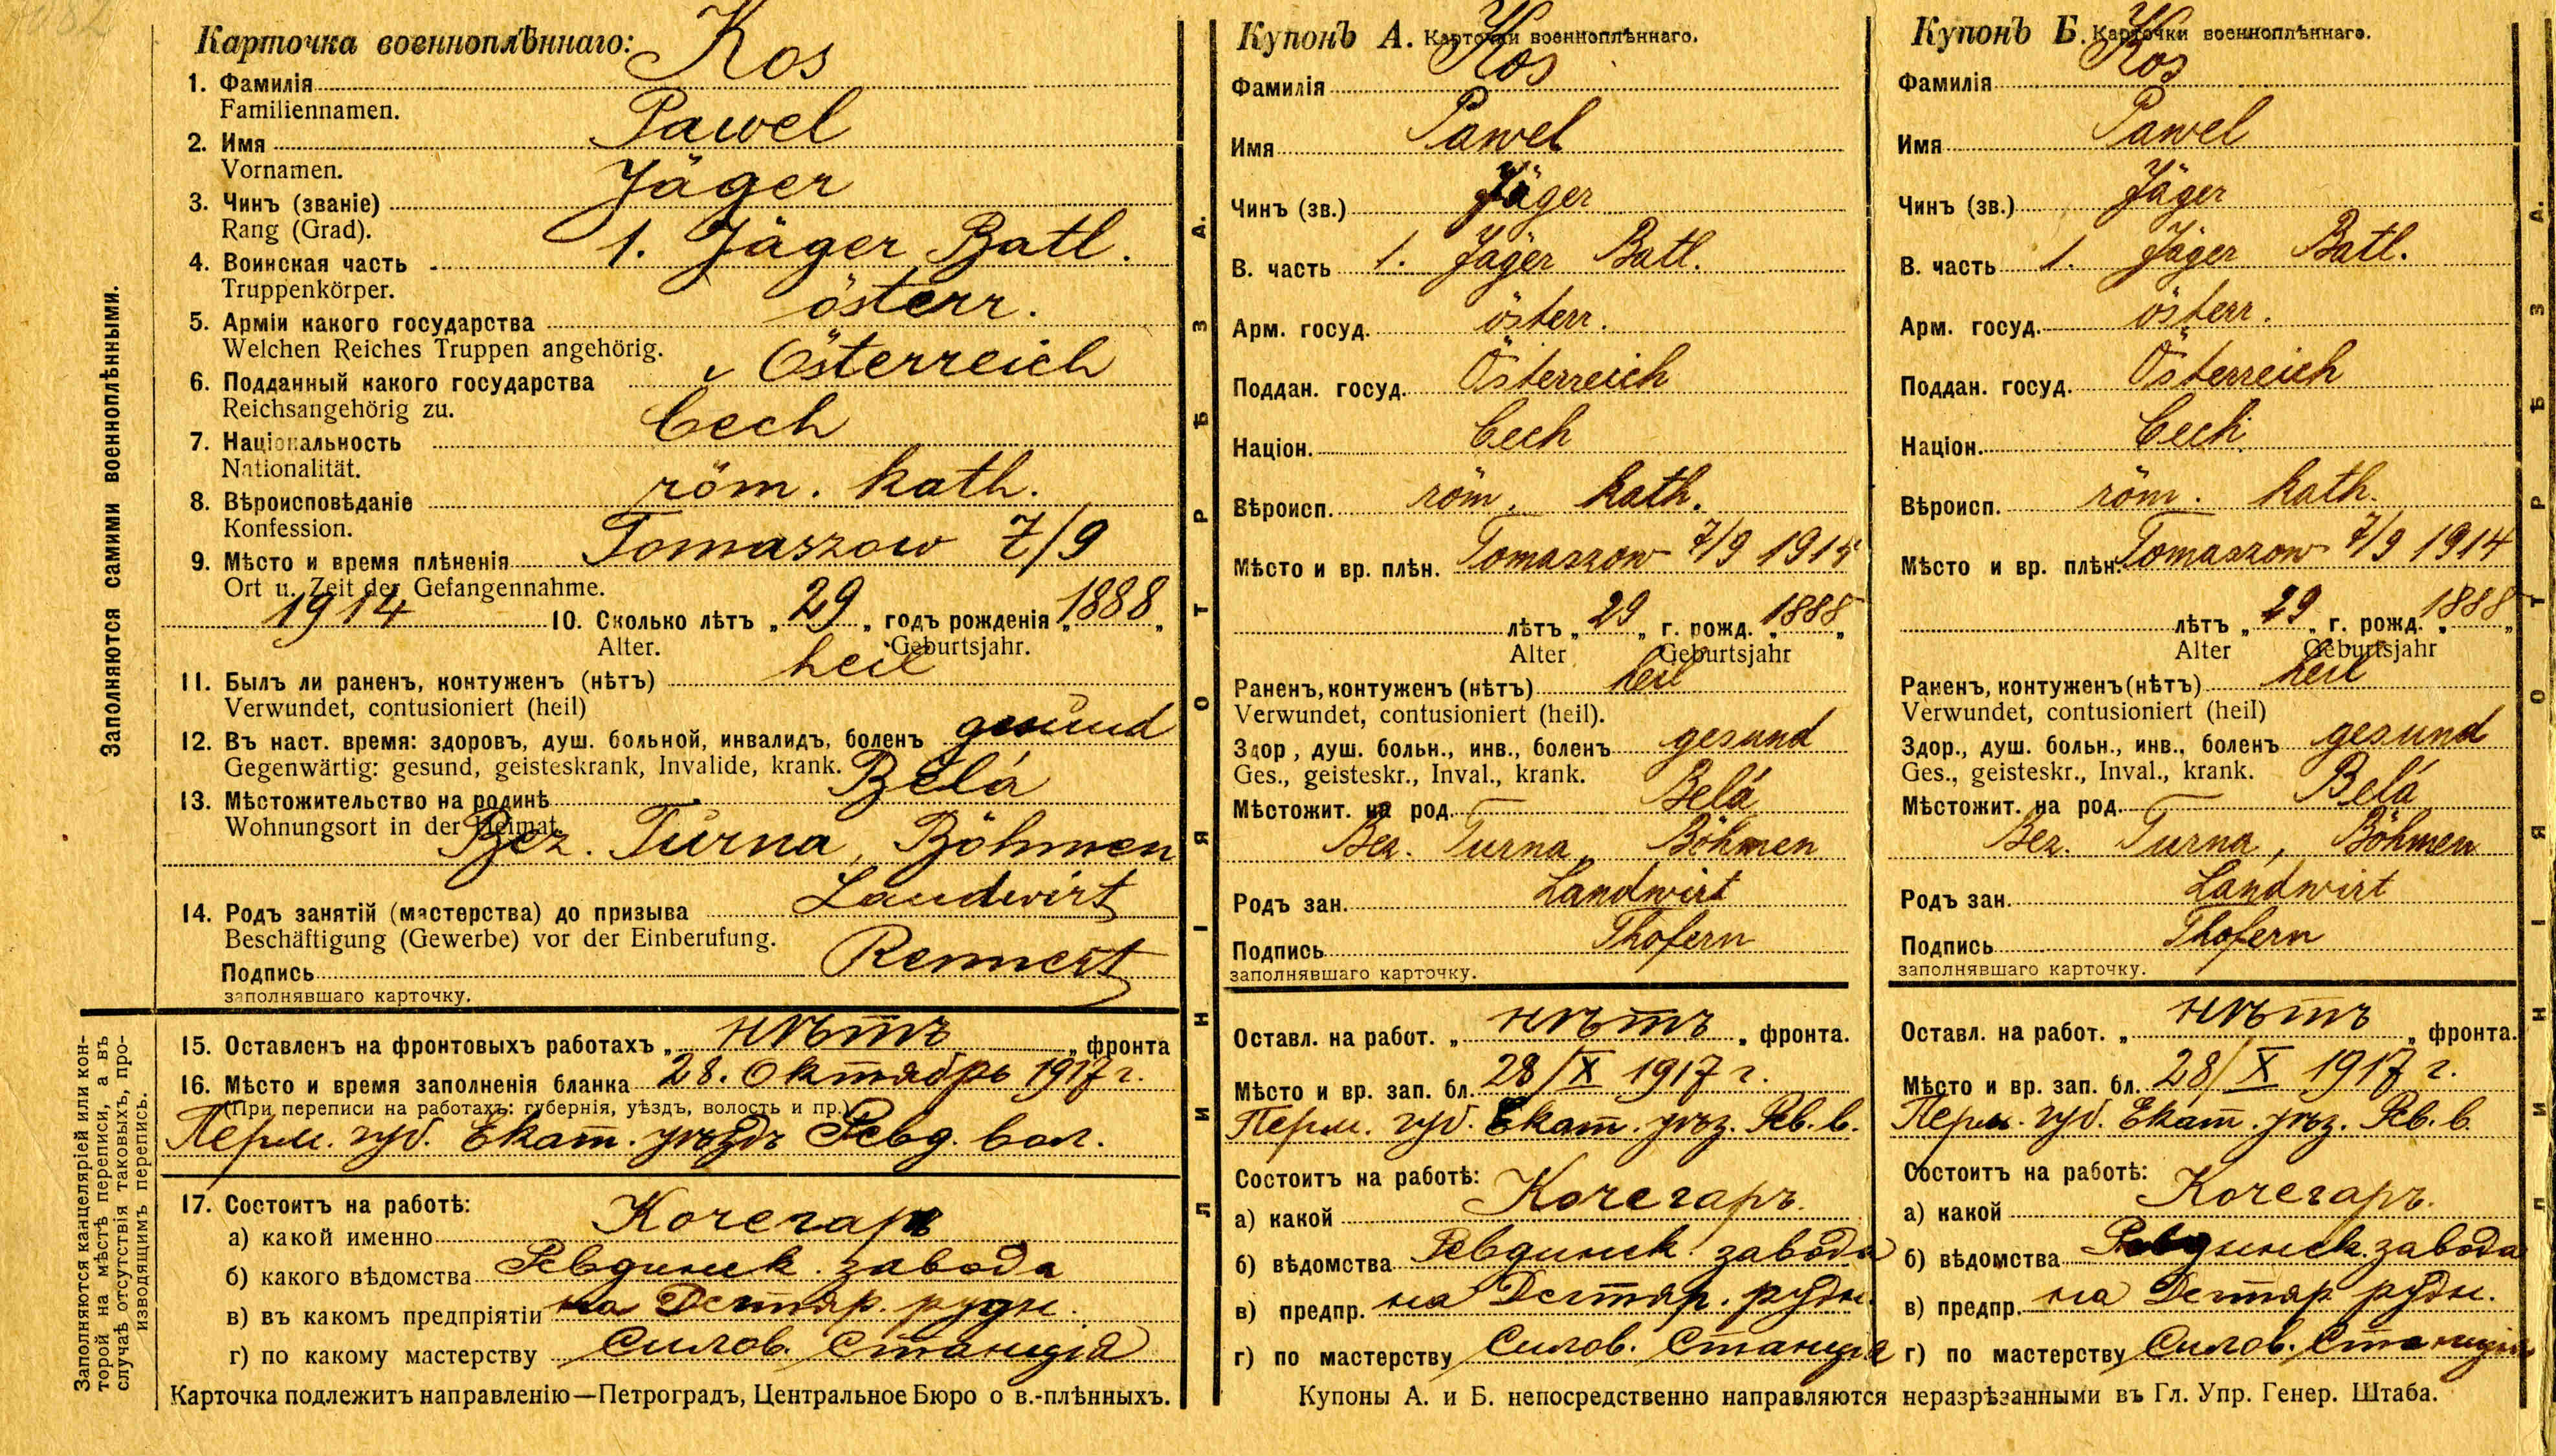 Карточка военноплѣннаго:
1. Фамилія Kos
Familiennamen.
2. Имя Pawel
Vornamen.
3. Чинъ (званіе) Jäger
Rang (Grad).
4. Воинская часть 1. Jäger Batl.
Truppenkörper.
5. Арміи какого государства österr.
Welchen Reiches Truppen angehörig.
6. Подданный какого государства Österreich
Reichsangehörig zu.
7. Національность Čech
Nationalität.
8. Вѣроисповѣданіе röm. kath.
Konfession.
9. Мѣсто и время плѣненія Tomaszow 7/9
Ort u. Zeit der Gefangennahme.
1914 10. Сколько лѣтъ „29„ годъ рожденія „1888„
Alter. Geburtsjahr.
11. Былъ ли раненъ, контуженъ (нѣтъ) heil
Verwundet, contusioniert (heil)
12. Въ наст. время: здоровъ, душ. больной, инвалидъ, боленъ gesund
Gegenwärtig: gesund, geisteskrank, Invalide, krank.
13. Мѣстожительство на родинѣ Belá
Wohnungsort in der Heimat.
Bez. Turna, Böhmen
14. Родъ занятій (мастерства) до призыва Landwirt
Beschäftigung (Gewerbe) vor der Einberufung.
Подпись Rennert
заполнявшаго карточку.
15. Оставленъ на фронтовыхъ работахъ „нѣтъ„ фронта
16. Мѣсто и время заполненія бланка 28. Октябрь 1917 г.
(При переписи на работахъ: губернія, уѣздъ, волость и пр.)
Перм. губ. Екат. уѣздъ Ревд. вол.
17. Состоитъ на работѣ:
а) какой именно Кочегаръ
б) какого вѣдомства Ревдинск. завода
в) въ какомъ предпріятіи на Дегтяр. рудн.
г) по какому мастерству Силов. Станція
Карточка подлежитъ направленію—Петроградъ, Центральное Бюро о в.-плѣнныхъ.
Заполняются самими военноплѣнными.
Заполняются канцеляріей или кон-
торой на мѣстѣ переписи, а въ
случаѣ отсутствія таковыхъ, про-
изводящимъ перепись.
ЛИНІЯ ОТРѢЗА.
Купонъ А. Карточки военноплѣннаго.
Фамилія Kos
Имя Pawel
Чинъ (зв.) Jäger
В. часть 1. Jäger Batl.
Арм. госуд. österr.
Поддан. госуд. Österreich
Націон. Čech
Вѣроисп. röm. kath.
Мѣсто и вр. плѣн. Tomaszow 7/9 1914
лѣтъ „29„ г. рожд. „1888„
Alter Geburtsjahr
Раненъ, контуженъ (нѣтъ) heil
Verwundet, contusioniert (heil).
Здор, душ. больн., инв., боленъ gesund
Ges., geisteskr., Inval., krank.
Мѣстожит. на род. Belá
Bez. Turna, Böhmen
Родъ зан. Landwirt
Подпись Thofern
заполнявшаго карточку.
Оставл. на работ. „нѣтъ„ фронта.
Мѣсто и вр. зап. бл. 28/X 1917 г.
Перм. губ. Екат. уѣз. Рев. в.
Состоитъ на работѣ:
а) какой Кочегаръ.
б) вѣдомства Ревдинск. завода
в) предпр. на Дегтяр. рудн.
г) по мастерству Силов. Станція
Купонъ Б. Карточки военноплѣннаго.
Фамилія Kos
Имя Pawel
Чинъ (зв.) Jäger
В. часть 1. Jäger Batl.
Арм. госуд. österr.
Поддан. госуд. Österreich
Націон. Čech
Вѣроисп. röm. kath.
Мѣсто и вр. плѣн. Tomaszow 7/9 1914
лѣтъ „29„ г. рожд. „1888„
Alter Geburtsjahr
Раненъ, контуженъ (нѣтъ) heil
Verwundet, contusioniert (heil)
Здор., душ. больн., инв., боленъ gesund
Ges., geisteskr., Inval., krank.
Мѣстожит. на род. Belá
Bez. Turna, Böhmen
Родъ зан. Landwirt
Подпись Thofern
заполнявшаго карточку.
Оставл. на работ. „нѣтъ„ фронта.
Мѣсто и вр. зап. бл. 28/X 1917 г.
Перм. губ. Екат. уѣз. Рев. в.
Состоитъ на работѣ:
а) какой Кочегаръ.
б) вѣдомства Ревдинск. завода
в) предпр. на Дегтяр рудн.
г) по мастерству Силов. Станція
Купоны А. и Б. непосредственно направляются неразрѣзанными въ Гл. Упр. Генер. Штаба.
ЛИНІЯ ОТРѢЗА.